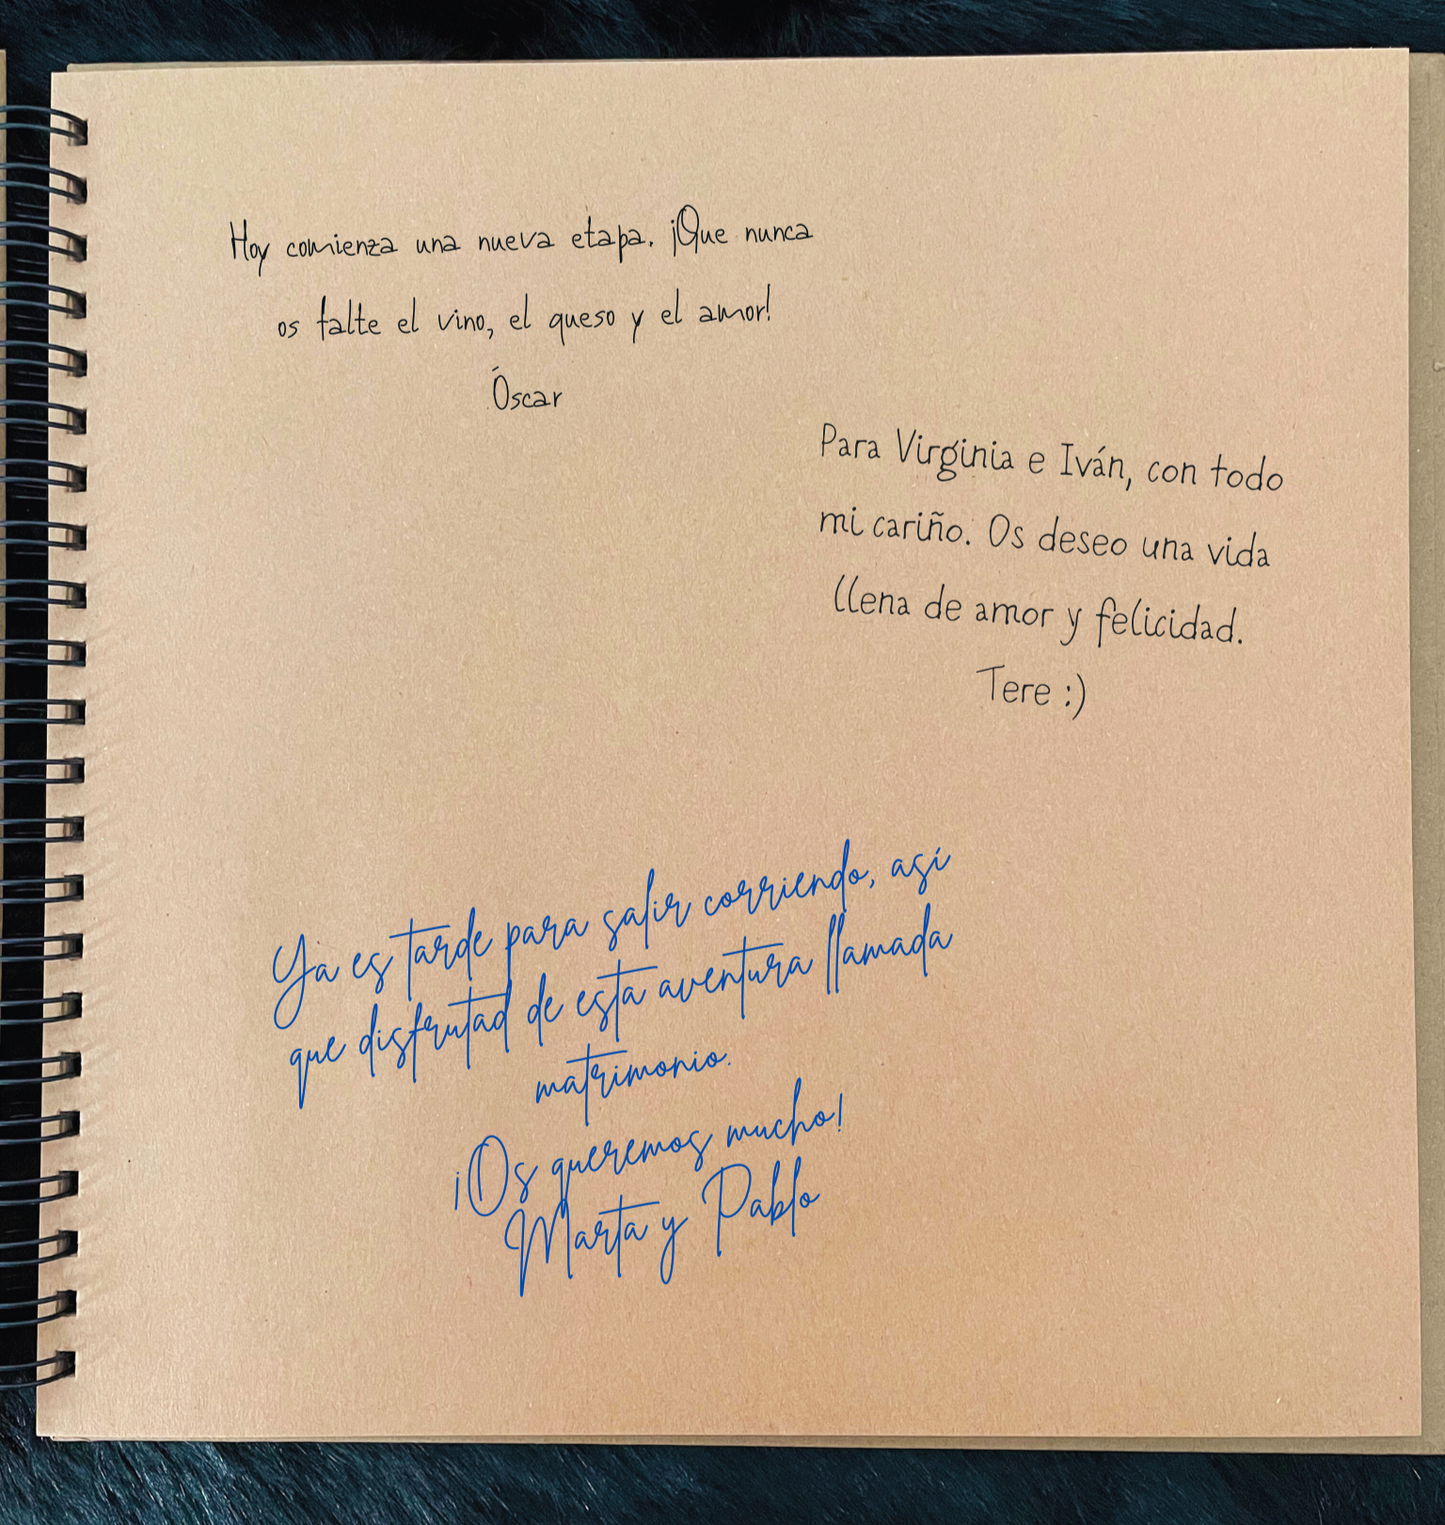 Hoy comienza una nueva etapa. ¡Que nunca
os falte el vino, el queso y el amor!
Óscar
Para Virginia e Iván, con todo
mi cariño. Os deseo una vida
llena de amor y felicidad.
Tere :)
Ya es tarde para salir corriendo, así
que disfrutad de esta aventura llamada
matrimonio.
¡Os queremos mucho!
Marta y Pablo